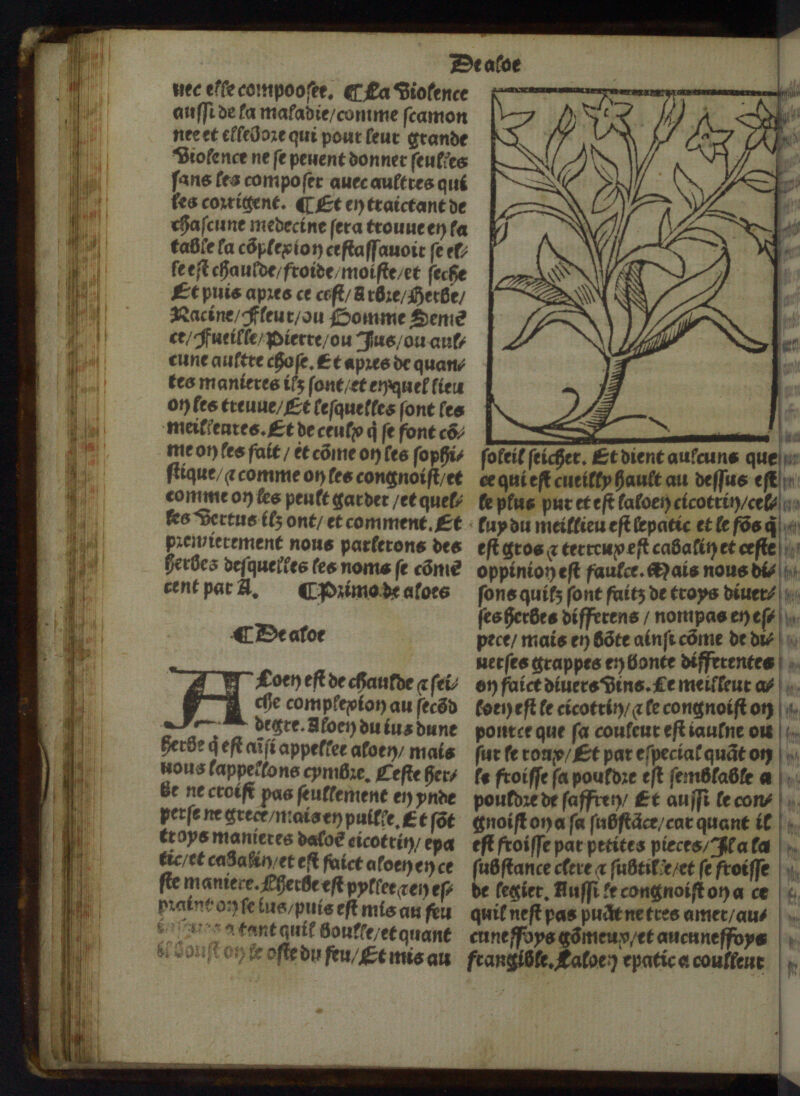 De aloe
uec elle compoosee. ⸿ La violence
aussi de la maladie/comme scamon
nee et ellebore qui pour leur grande
violence ne se peuent donner seulles
sans les composer auec aultres qui
les corrigent. ⸿ Et en traictant de
chascune medecine sera trouue en la
table la cõplexion cestassauoir se el⸗
le est chaulde/froide/moiste/et seche
Et puis apres ce cest/Arbre/Herbe/
Racine/Fleur/ou Gomme Semẽ
ce/Fueille/Pierre/ou Jus/ou aul⸗
cune aultre chose. Et apres de quan⸗
tes manieres ilz sont/et en quel lieu
on les treuue/Et lesquelles sont les
meilleures. Et de ceulx q̃ se font cõ⸗
me on les fait / et cõme on les sophi⸗
stique/⁊ comme on les congnoist/et
comme on les peult garder /et quel⸗
les vertus ilz ont/ et comment. Et
premierement nous parlerons des
herbes desquelles les noms se cõmẽ
cent par A. ⸿ Primo de aloes
⸿ De aloe
ALoen est de chaulde ⁊ sei⸗
che complexion au secõd
degre. Aloen du ius dune
herbe q̃ est aĩsi appellee aloen/ mais
nous lappellons cymbre. Ceste her⸗
be ne croist pas seullement en ynde
perse ne grece/mais en puille. Et sõt
troys manieres daloẽ cicotrin/ epa
tic/et cabalin/et est faict aloen en ce
ste maniere. Lherbe est pyllee ⁊ en es⸗
praint on le ius/puis est mis au feu
a tant quil boulle/et quant
il boust on le oste du feu/Et mis au
soleil seicher. Et dient aulcuns que
ce qui est cueilly hault au dessus est
le plus pur et est laloen cicotrin/cel⸗
luy du meillieu est lepatic et le fõs q̃
est gros ⁊ terreux est cabalin et ceste
oppinion est faulce. Mais nous di⸗
sons quilz sont faitz de troys diuer⸗
ses herbes differens / nompas en es⸗
pece/ mais en bõte ainsi cõme de di⸗
uerses grappes en bonte differentes
on faict diuers vins. Le meilleur a⸗
loen est le cicotrin/⁊ le congnoist on
pource que sa couleur est iaulne ou
sur le roux/Et par especial quãt on
le froisse sa pouldre est semblable a
pouldre de saffren/ Et aussi le con⸗
gnoist on a sa substãce/car quant il
est froisse par petites pieces/Il a la
substance clere ⁊ subtille/et se froisse
de legier. Aussi le congnoist on a ce
quil nest pas puãt ne tres amer/au⸗
cuneffoys gõmeux/et aucuneffoys
frangible. Laloen epatic a coulleur